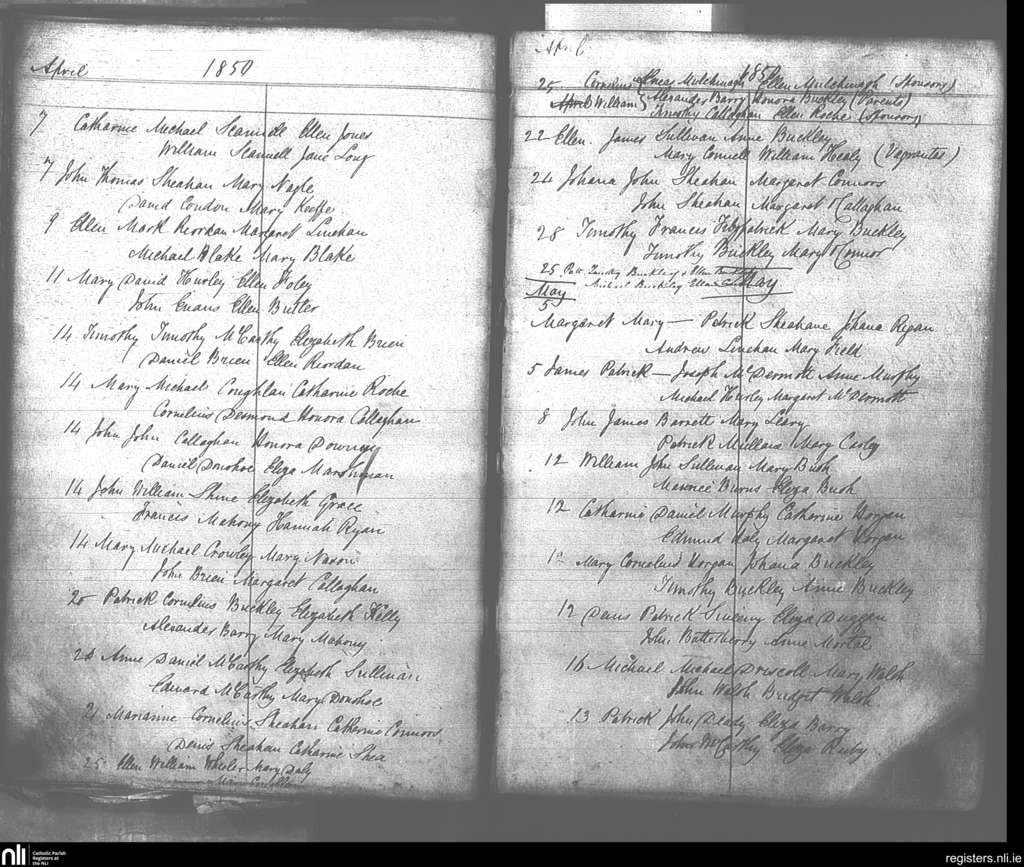 April 1850
7 Catharine Michael Scannell Ellen Jones
William Scannell Jane Long
7 John Thomas Sheahan Mary Nagle
David Condon Mary Keeffe
9 Ellen Mark Reordan Margaret Linehan
Michael Blake Mary Blake
11 Mary David Hurley Ellen Foley
John Evans Ellen Butler
14 Timothy Timothy McCarthy Elizabeth Brien
Daniel Brien Ellen Riordan
14 Mary Michael Coughlan Catharine Roche
Cornelius Desmond Honora Callaghan
14 John John Callaghan Honora Downey
Daniel Donohoe Eliza
14 John William Shine Elizabeth Grace
Francis Mahony Hannah Ryan
14 Mary Michael Crowley Mary
John Brien Margaret Callaghan
20 Patrick Cornelius Buckley Elizabeth Kelly
Alexander Barry Mary Mahony
20 Anne Daniel McCarthy Elizabeth Sullivan
Edward McCarthy Mary Donohoe
21 Marianne Cornelius Sheahan Catherine Connors
Denis Sheahan Catharine Shea
25 Ellen William Wheeler Mary Daly
April 1850
25 Cornelius Ellen (Sponsors)
April William Alexander Barry Honora Buckley (Parents)
Timothy Callaghan Ellen Roche (Sponsors)
22 Ellen. James Sullivan Anne Buckley
Mary Connell William Healy (Vagrantes)
24 Johana John Sheahan Margaret Connors
John Sheahan Margaret O'Callaghan
28 Timothy Francis Fitzpatrick Mary Buckley
Timothy Buckley Mary O'Connor
25 Pat. Timothy Buckley & Ellen
Michael Buckley Ellen
May May
5
Margaret Mary — Patrick Sheahane Johana Regan
Andrew Linehan Mary Field
5 James Patrick — Joseph McDermott Anne Murphy
Michael Hurley Margaret McDermott
8 John James Barrett Mary Leary
Patrick Mullans Mary Casey
12 William John Sullivan Mary Bush
Maurice Burns Eliza Bush
12 Catharine Daniel Murphy Catherine Horgan
Edmund Daly Margaret Horgan
Mary Cornelius Horgan Johana Buckley
Timothy Buckley Anne Buckley
12 Denis Patrick Sweeny Eliza Duggan
John Batterberry Anne
16 Michael Michael Driscoll Mary Walsh
John Walsh Bridget Walsh
13 Patrick John Deady Eliza Barry
John McCarthy Eliza Ruby
nli Catholic Parish Registers at the NLI
registers.nli.ie